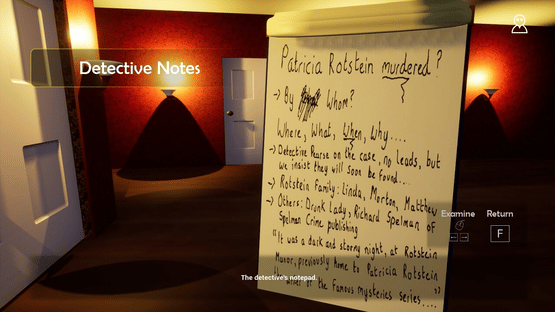 Detective Notes
Patricia Rotstein murdered?
→ By Whom?
Where, What, When, Why....
→ Detective Pearse on the case, no leads, but
we insist they will soon be found....
→ Rotstein Family: Linda, Morton, Matthew
→ Others: Drunk Lady, Richard Spelman of
Spelman Crime publishing
"It was a dark and stormy night, at Rotstein
Manor, previously home to Patricia Rotstein
of the famous mysteries series....."
Examine
Return
F
The detective's notepad.